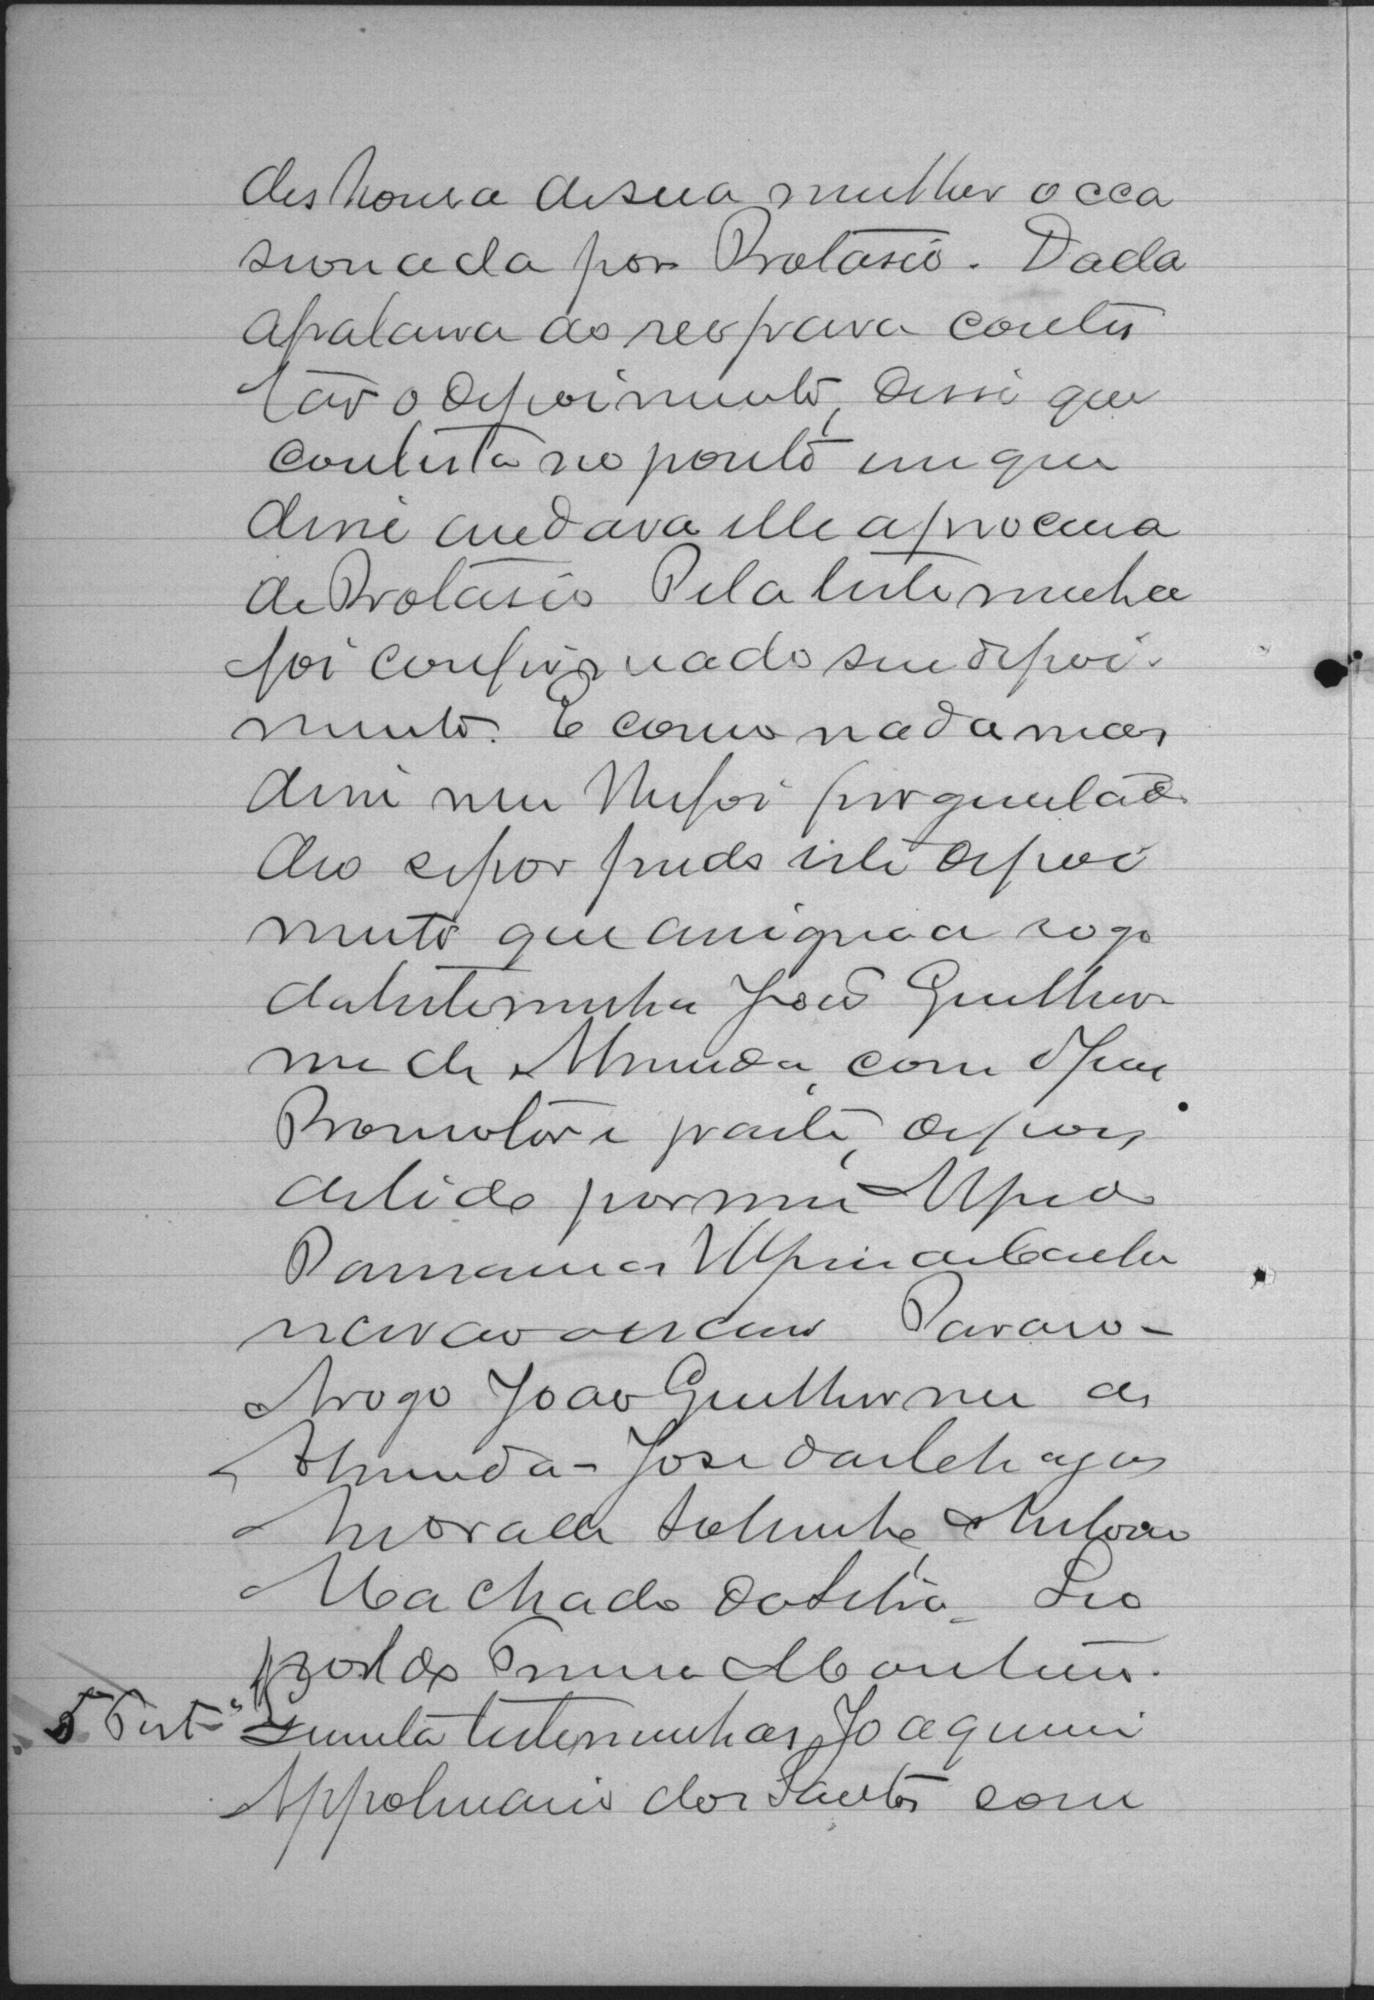 deshonra de sua mulher occa
sionada por Protasio. Dada
a palavra ao reo para contes
tar o depoimento, disse que
contesta no ponto em que
disse andava elle a procura
de Protasio Pela testemunha
foi confirmado seu depoi-
mento. E como nada mais
disse nem lhe foi perguntado
deo se por findo este depoi
mento que assigna a rogo
da testemunha João Guilher
me de Almeida, com o Juiz
Promotor e parte, depois
de lido por mim Alfredo
escrivão o escrevo
Arogo João Guilherme de
Almeida - Jose das Chagas
Andrade Sobrinho, Antonio
Machado da Silva Leo
poldo Monteiro.
5ª Test.ª Quinta testemunha Joaquim
Appolinario dos Santos com